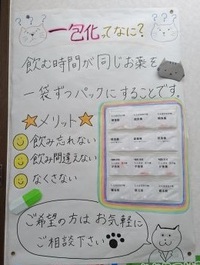 一包化ってなに?
飲む時間が同じお薬を
一袋ずつパックにすることです。
メリット
飲み忘れない
飲み間違えない
なくさない
ご希望の方は お気軽に
ご相談下さい